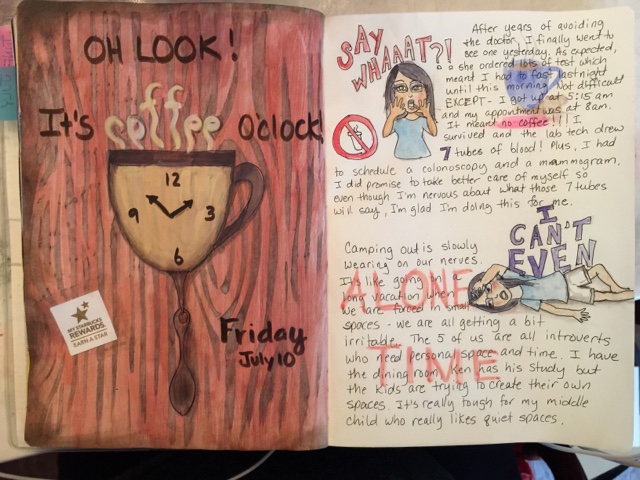 OH LOOK!
It's coffee O'clock!
12
9 3
6
MY STARBUCKS
REWARDS
EARN A STAR
Friday
July 10
SAY
WHAAAT?!
After years of avoiding
the doctor, I finally went to
see one yesterday. As expected,
she ordered lots of test which
meant I had to fast last night
until this morning. Not difficult
EXCEPT - I got up at 5:15 am
and my appointment was at 8am.
It meant no coffee!!! I
survived and the lab tech drew
7 tubes of blood! Plus, I had
to schedule a colonoscopy and a mammogram.
I did promise to take better care of myself so
even though I'm nervous about what those 7 tubes
will say, I'm glad I'm doing this for me.
I
CAN'T
EVEN
Camping out is slowly
wearing on our nerves.
It's like going on
long vacation when
we are forced in small
spaces - we are all getting a bit
irritable. The 5 of us are all introverts
who need personal space and time. I have
the dining room, Ken has his study but
the kids are trying to create their own
spaces. It's really tough for my middle
child who really likes quiet spaces.
ALONE
TIME